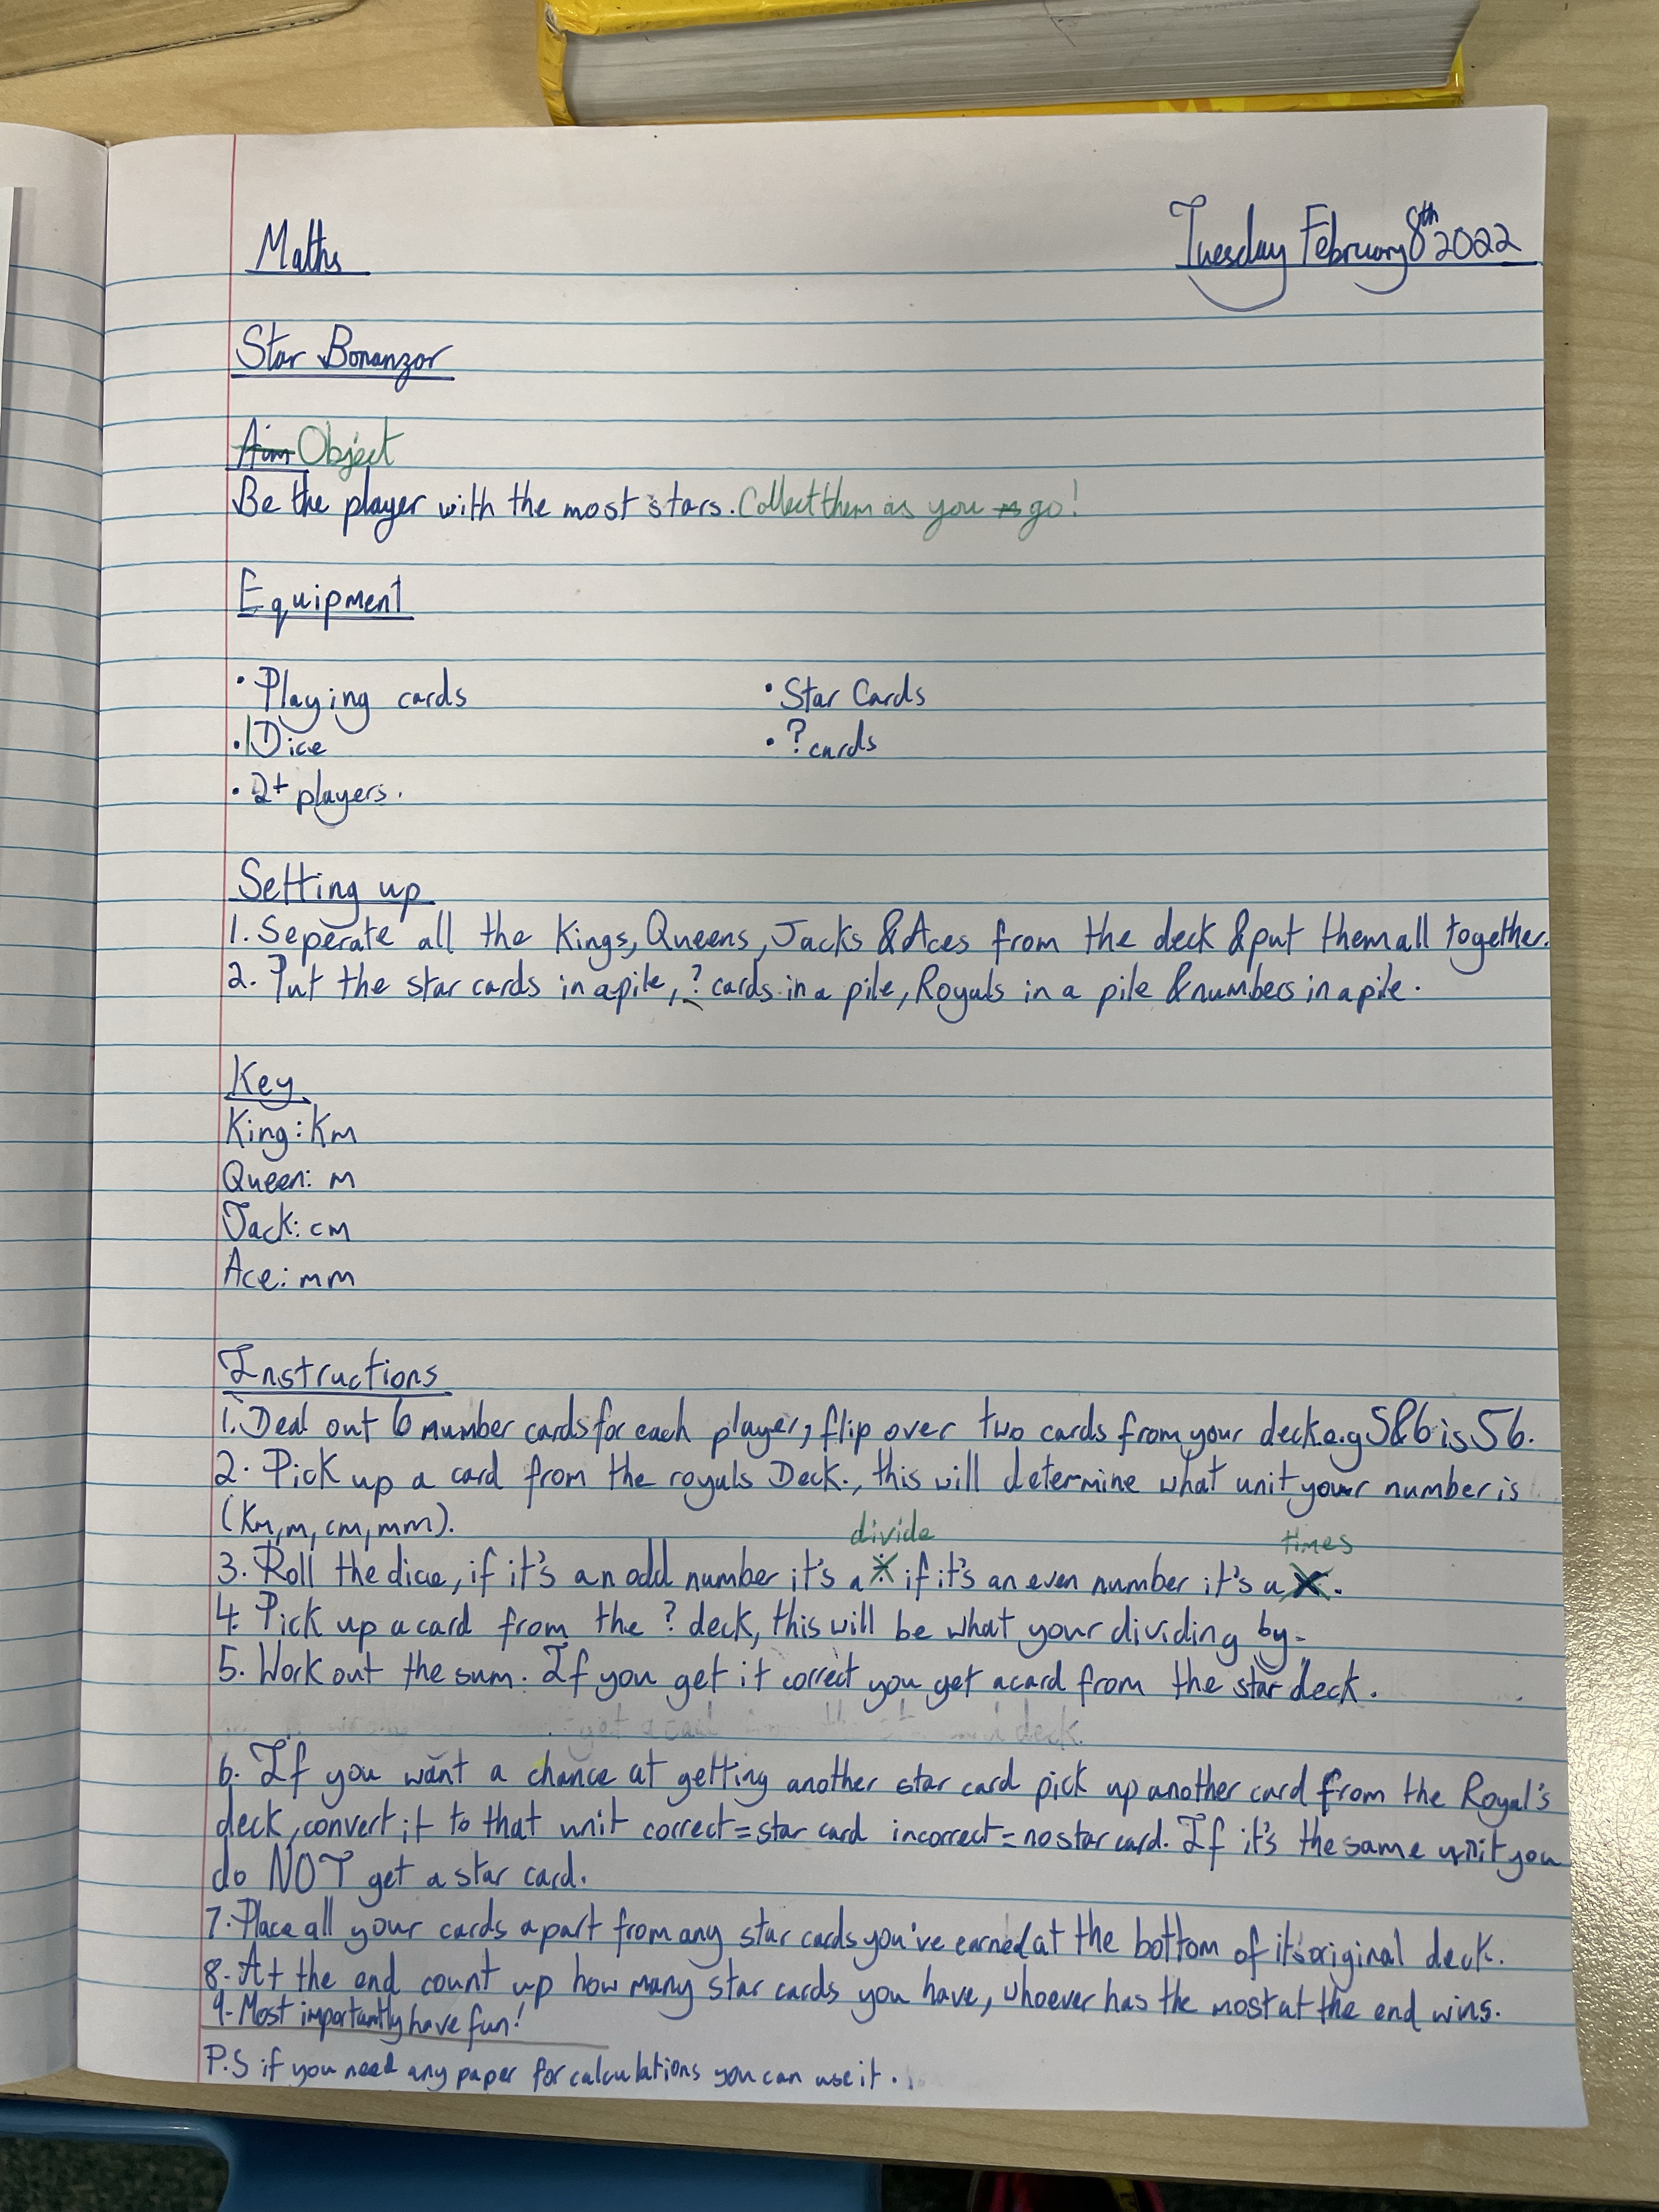 Maths
Tuesday February 8th 2022
Star Bonanzor
Aim Object
Be the player with the most stars. Collect them as you go!
Equipment
• Playing cards
• Star Cards
• 1 Dice
• ? cards
• 2+ players.
Setting up
1. Seperate all the Kings, Queens, Jacks & Aces from the deck & put them all together.
2. Put the star cards in a pile, ? cards in a pile, Royals in a pile & numbers in a pile.
Key
King: Km
Queen: m
Jack: cm
Ace: mm
Instructions
1. Deal out 6 number cards for each player, flip over two cards from your deck e.g 5&6 is 56.
2. Pick up a card from the royals Deck., this will determine what unit your number is
(Km, m, cm, mm).
divide
times
3. Roll the dice, if it's an odd number it's a ÷ if it's an even number it's a x.
4. Pick up a card from the ? deck, this will be what your dividing by.
5. Work out the sum. If you get it correct you get a card from the star deck.
6. If you want a chance at getting another star card pick up another card from the Royal's
deck, convert it to that unit correct = star card incorrect = no star card. If it's the same unit you
do NOT get a star card.
7. Place all your cards apart from any star cards you've earned at the bottom of it's original deck.
8. At the end count up how many star cards you have, whoever has the most at the end wins.
9. Most importantly have fun!
P.S if you need any paper for calculations you can use it.